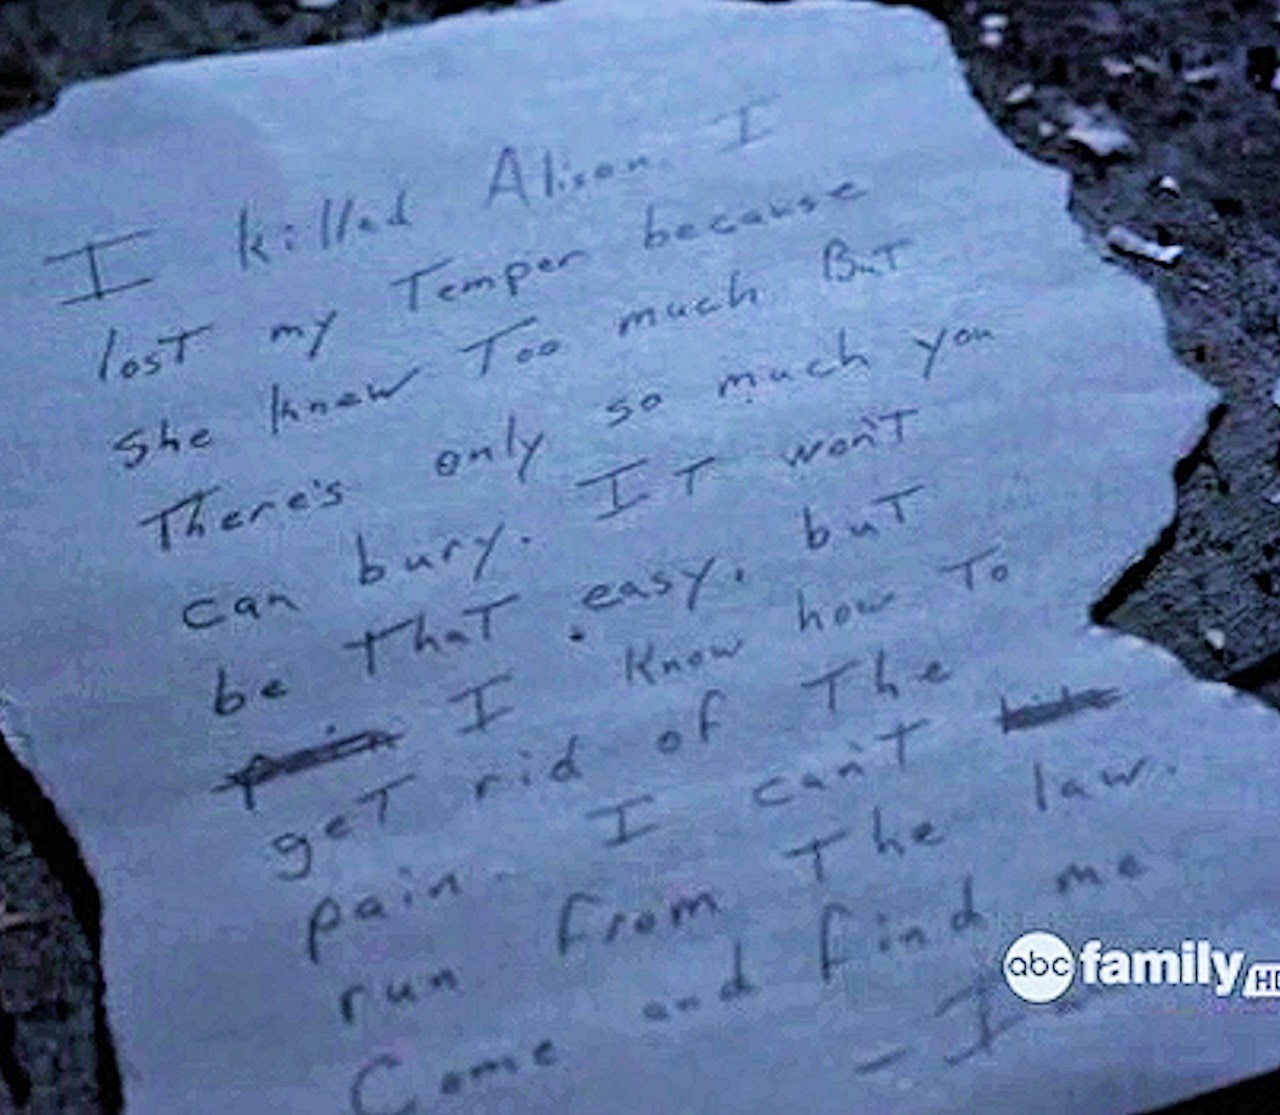 I killed Alison. I
lost my Temper because
she knew Too much. BuT
There's only so much you
can bury. IT won't
be ThaT easy, buT
I Know how To
geT rid of The
pain. I can'T
run from The law.
Come and find me
- I
abc family HD